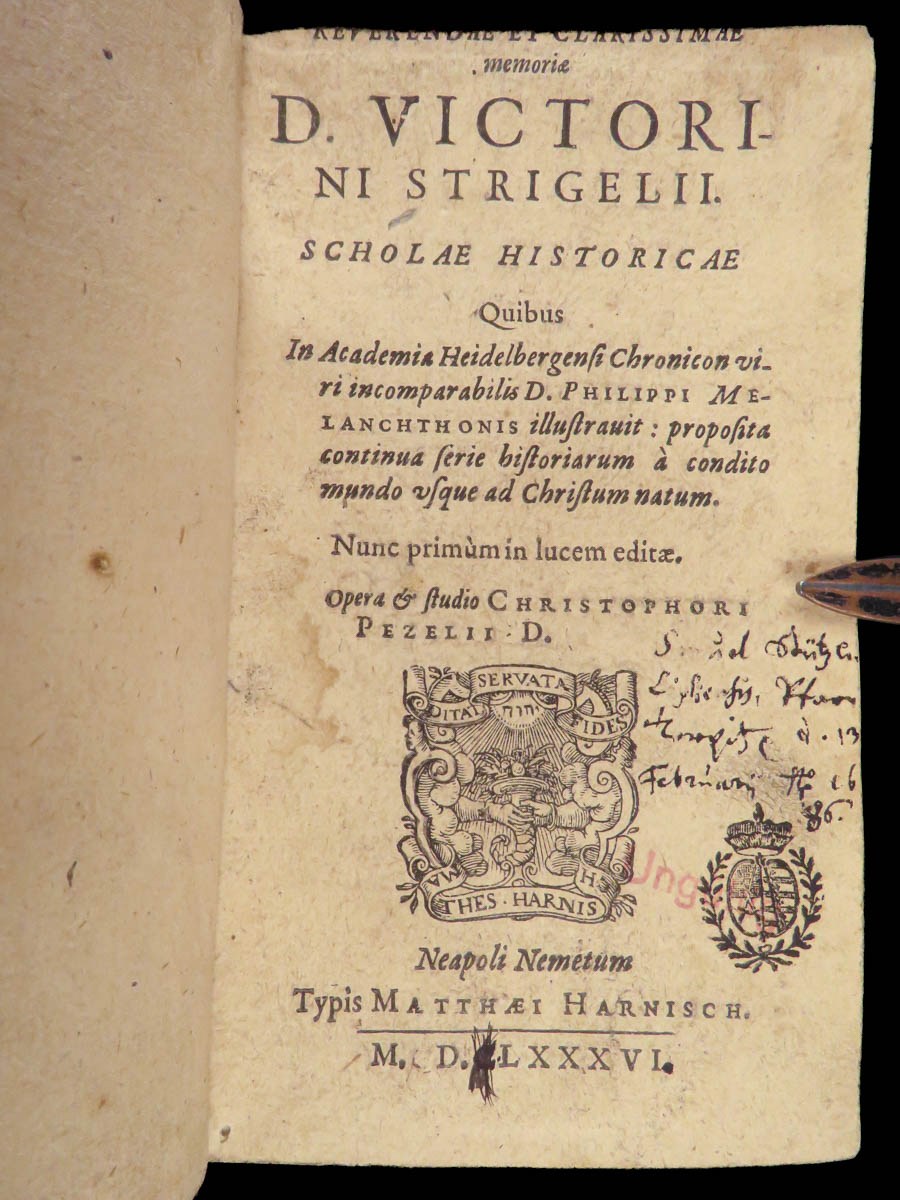 REVERENDAE ET CLARISSIMAE
memoriæ
D. VICTORI-
NI STRIGELII.
SCHOLAE HISTORICAE
Quibus
In Academia Heidelbergenſi Chronicon vi-
ri incomparabilis D. PHILIPPI ME-
LANCHTHONIS illuſtrauit : propoſita
continua ſerie hiſtoriarum à condito
mundo vſque ad Chriſtum natum.
Nunc primùm in lucem editæ.
Opera & ſtudio CHRISTOPHORI
PEZELII D.
SERVATA
DITAT
FIDES
יהוה
MA
H
THES · HARNIS
Februarij
86.
Ung
Neapoli Nemetum
Typis MATTHÆI HARNISCH.
M. D. LXXXVI.